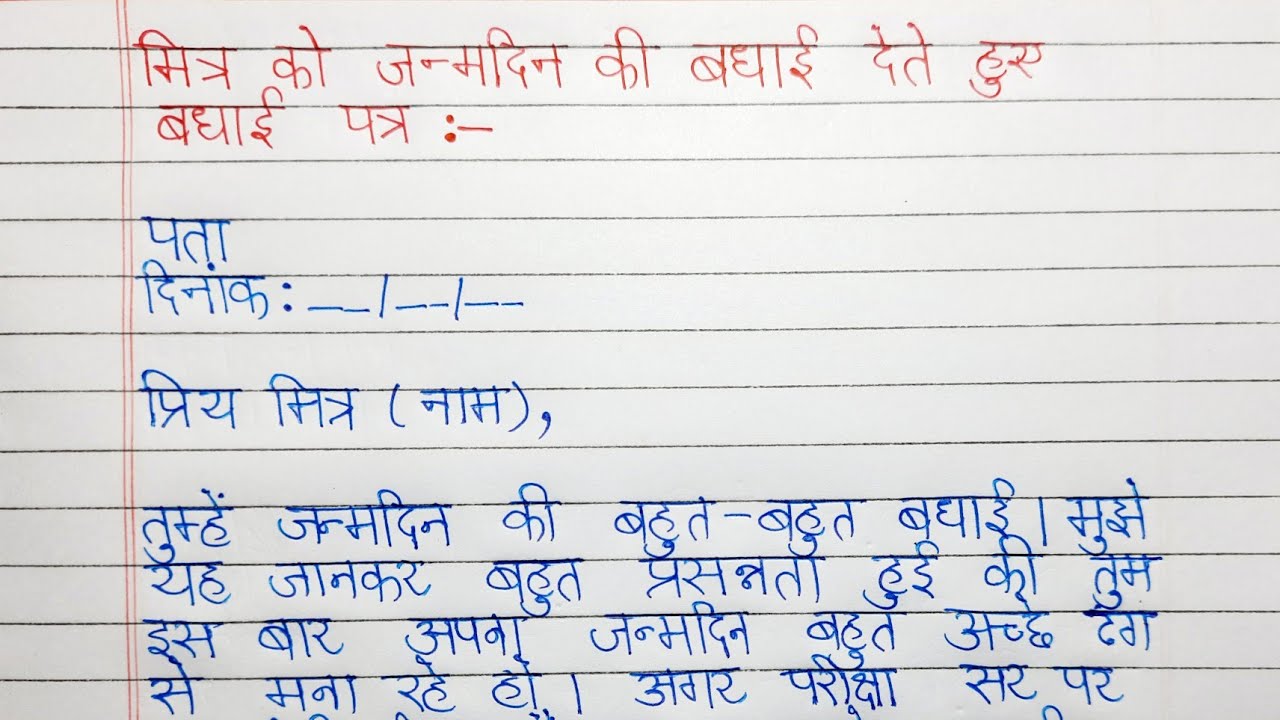 मित्र को जन्मदिन की बधाई देते हुए
बधाई पत्र :-
पता
दिनांक: __/__/__
प्रिय मित्र (नाम),
तुम्हें जन्मदिन की बहुत-बहुत बधाई। मुझे
यह जानकर बहुत प्रसन्नता हुई की तुम
इस बार अपना जन्मदिन बहुत अच्छे ढंग
से मना रहे हो। अगर परीक्षा सर पर